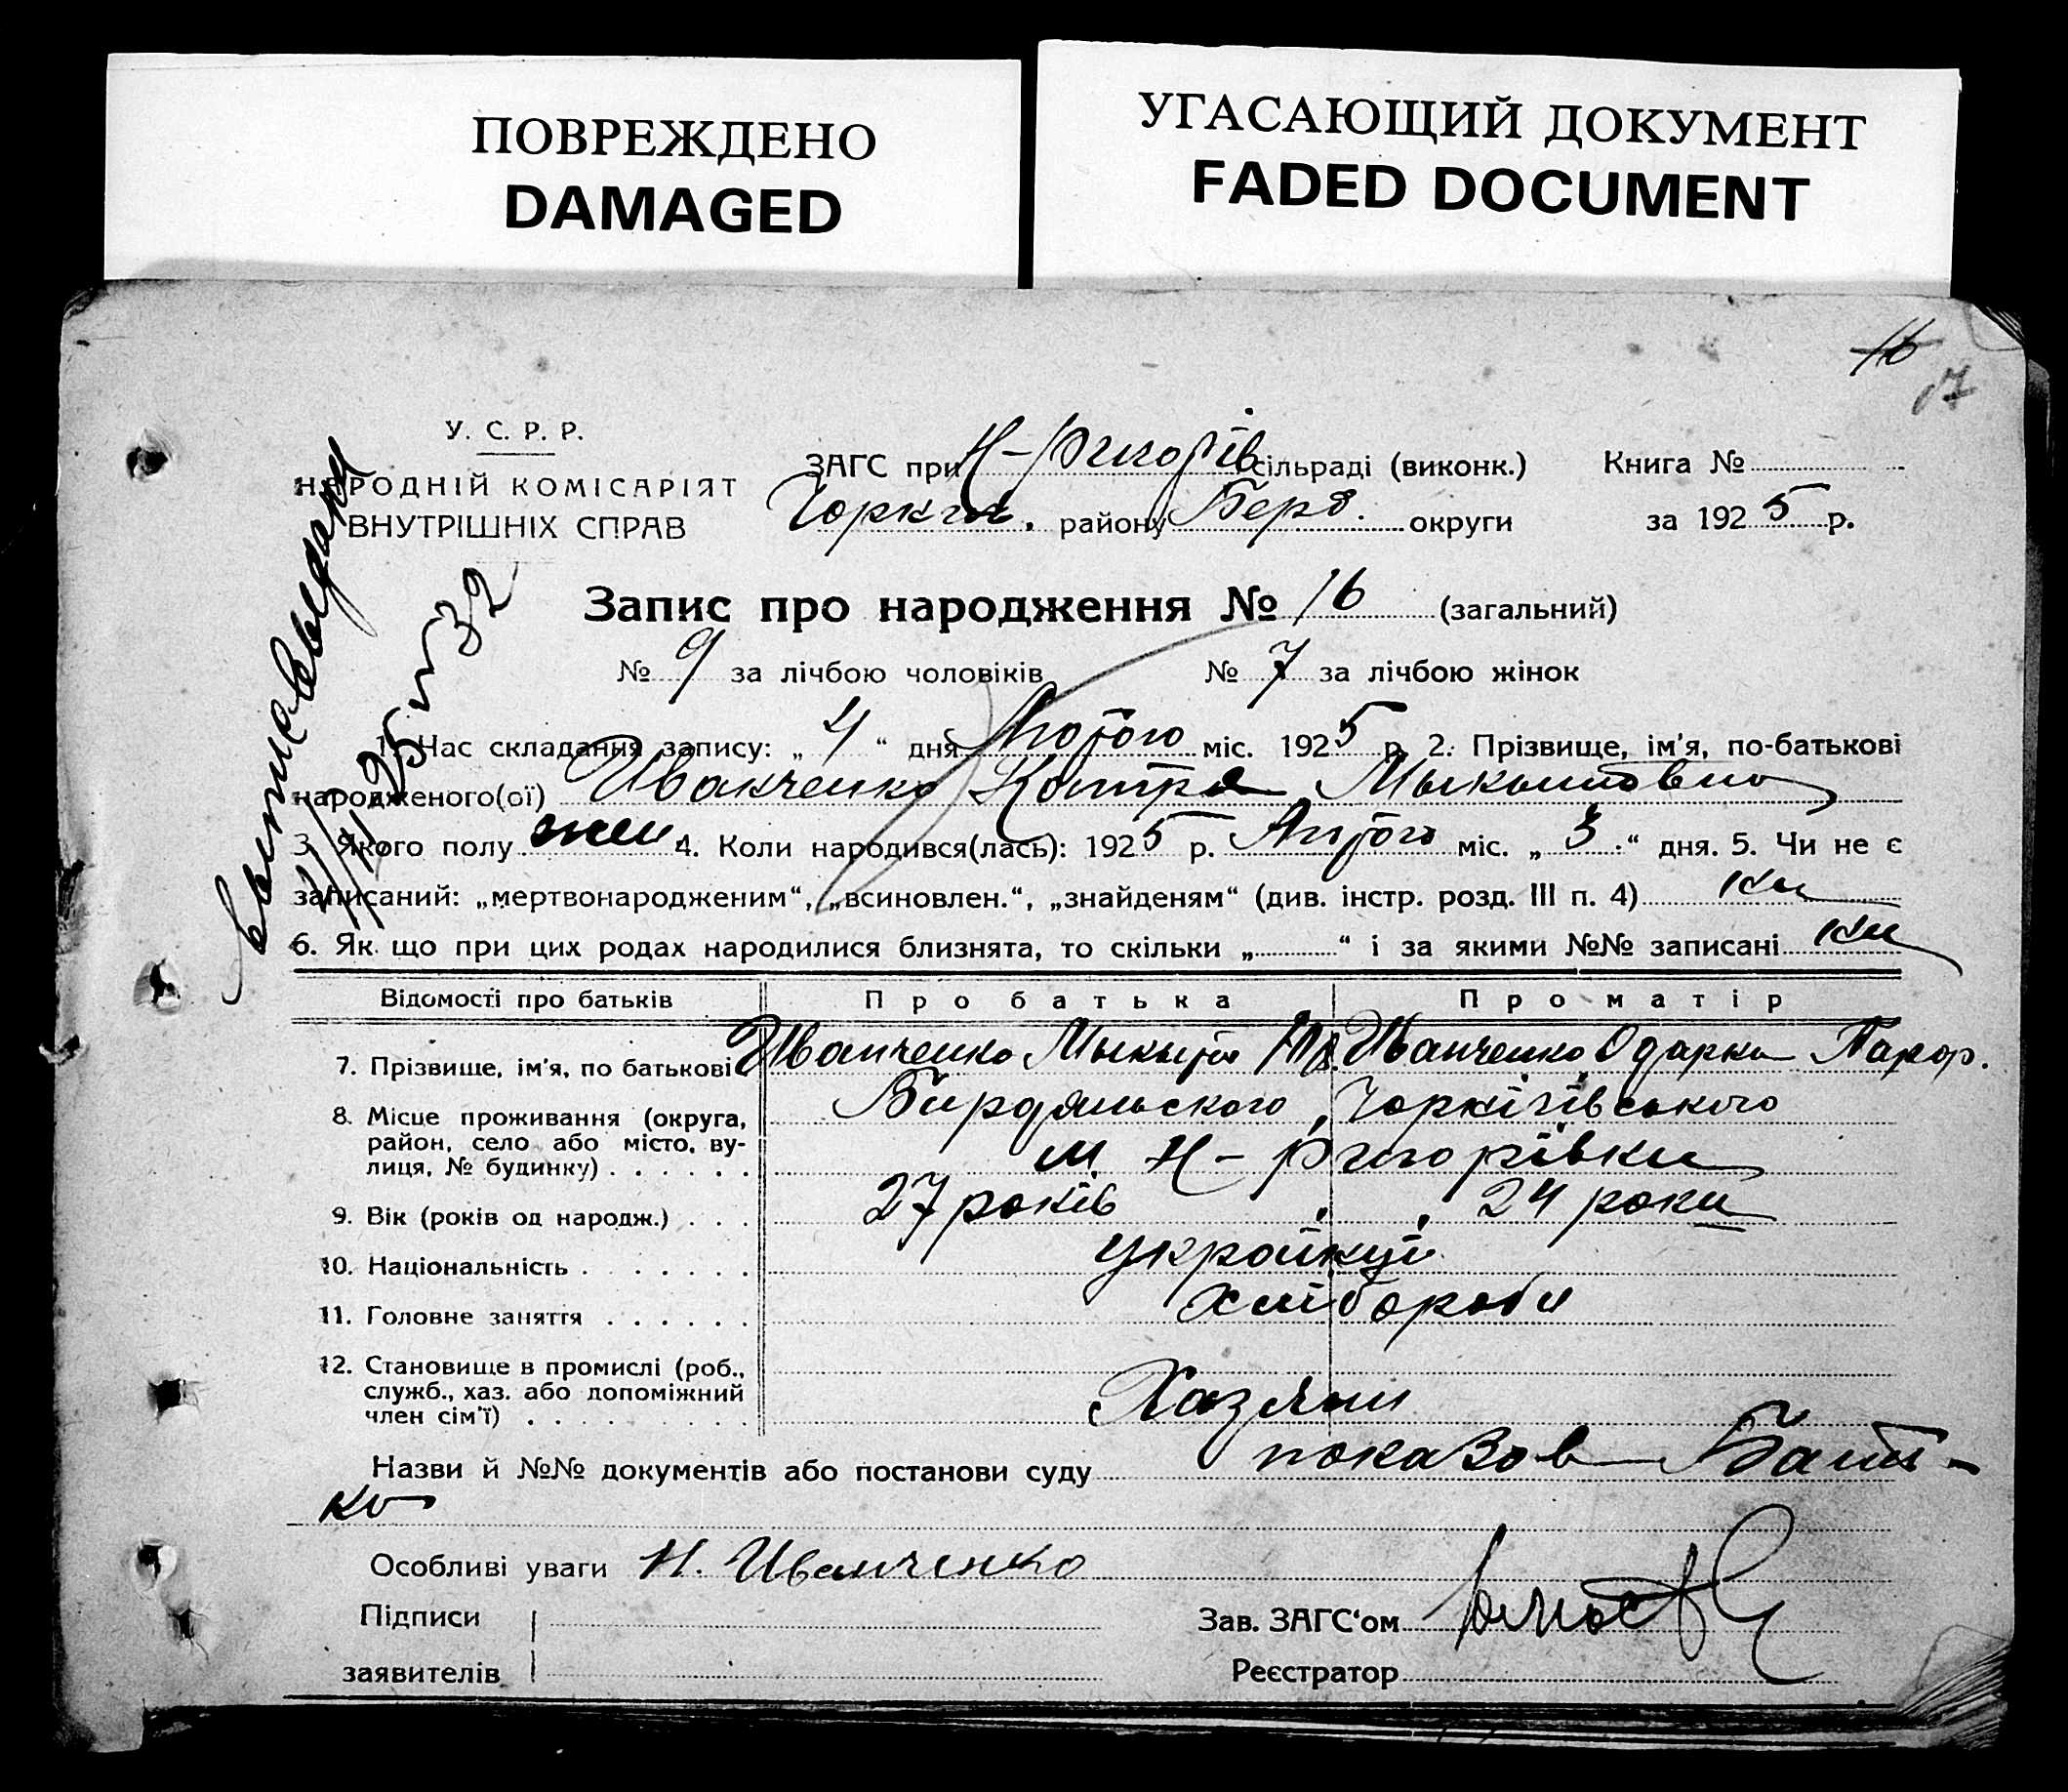 ПОВРЕЖДЕНО
DAMAGED
УГАСАЮЩИЙ ДОКУМЕНТ
FADED DOCUMENT
16
17
У. С. Р. Р.
НАРОДНІЙ КОМІСАРІЯТ
ВНУТРІШНІХ СПРАВ
ЗАГС при Н-Григорів сільраді (виконк.) Книга №
району Берд. округи за 1925 р.
Запис про народження № 16 (загальний)
№ 9 за лічбою чоловіків № 7 за лічбою жінок
1. Час складання запису: „4“ дня Лютого міс. 1925 р. 2. Прізвище, ім'я, по-батькові
народженого(ої) Иванченко Катря Мыкытовна
3. Якого полу жін 4. Коли народився(лась): 1925 р. Лютого міс. „3.“ дня. 5. Чи не є
записаний: „мертвонародженим“, „всиновлен.“, „знайденям“ (див. інстр. розд. III п. 4) ни
6. Як що при цих родах народилися близнята, то скільки „ “ і за якими №№ записані ни
Відомості про батьків Про батька Про матір
7. Прізвище, ім'я, по батькові Иванченко Мыкыта Иванченко Одарка
8. Місце проживання (округа, район, село або місто, вулиця, № будинку) Бирдянського,
Н-Григорівки
9. Вік (років од народж.) 27 років, 24 роки
10. Національність українці
11. Головне заняття хліборобы
12. Становище в промислі (роб., служб., хаз. або допоміжний член сім'ї) Хазяни
Назви й №№ документів або постанови суду показов Бать-
ко
Особливі уваги Н. Иванченко
Підписи
заявителів
Зав. ЗАГС'ом
Реєстратор